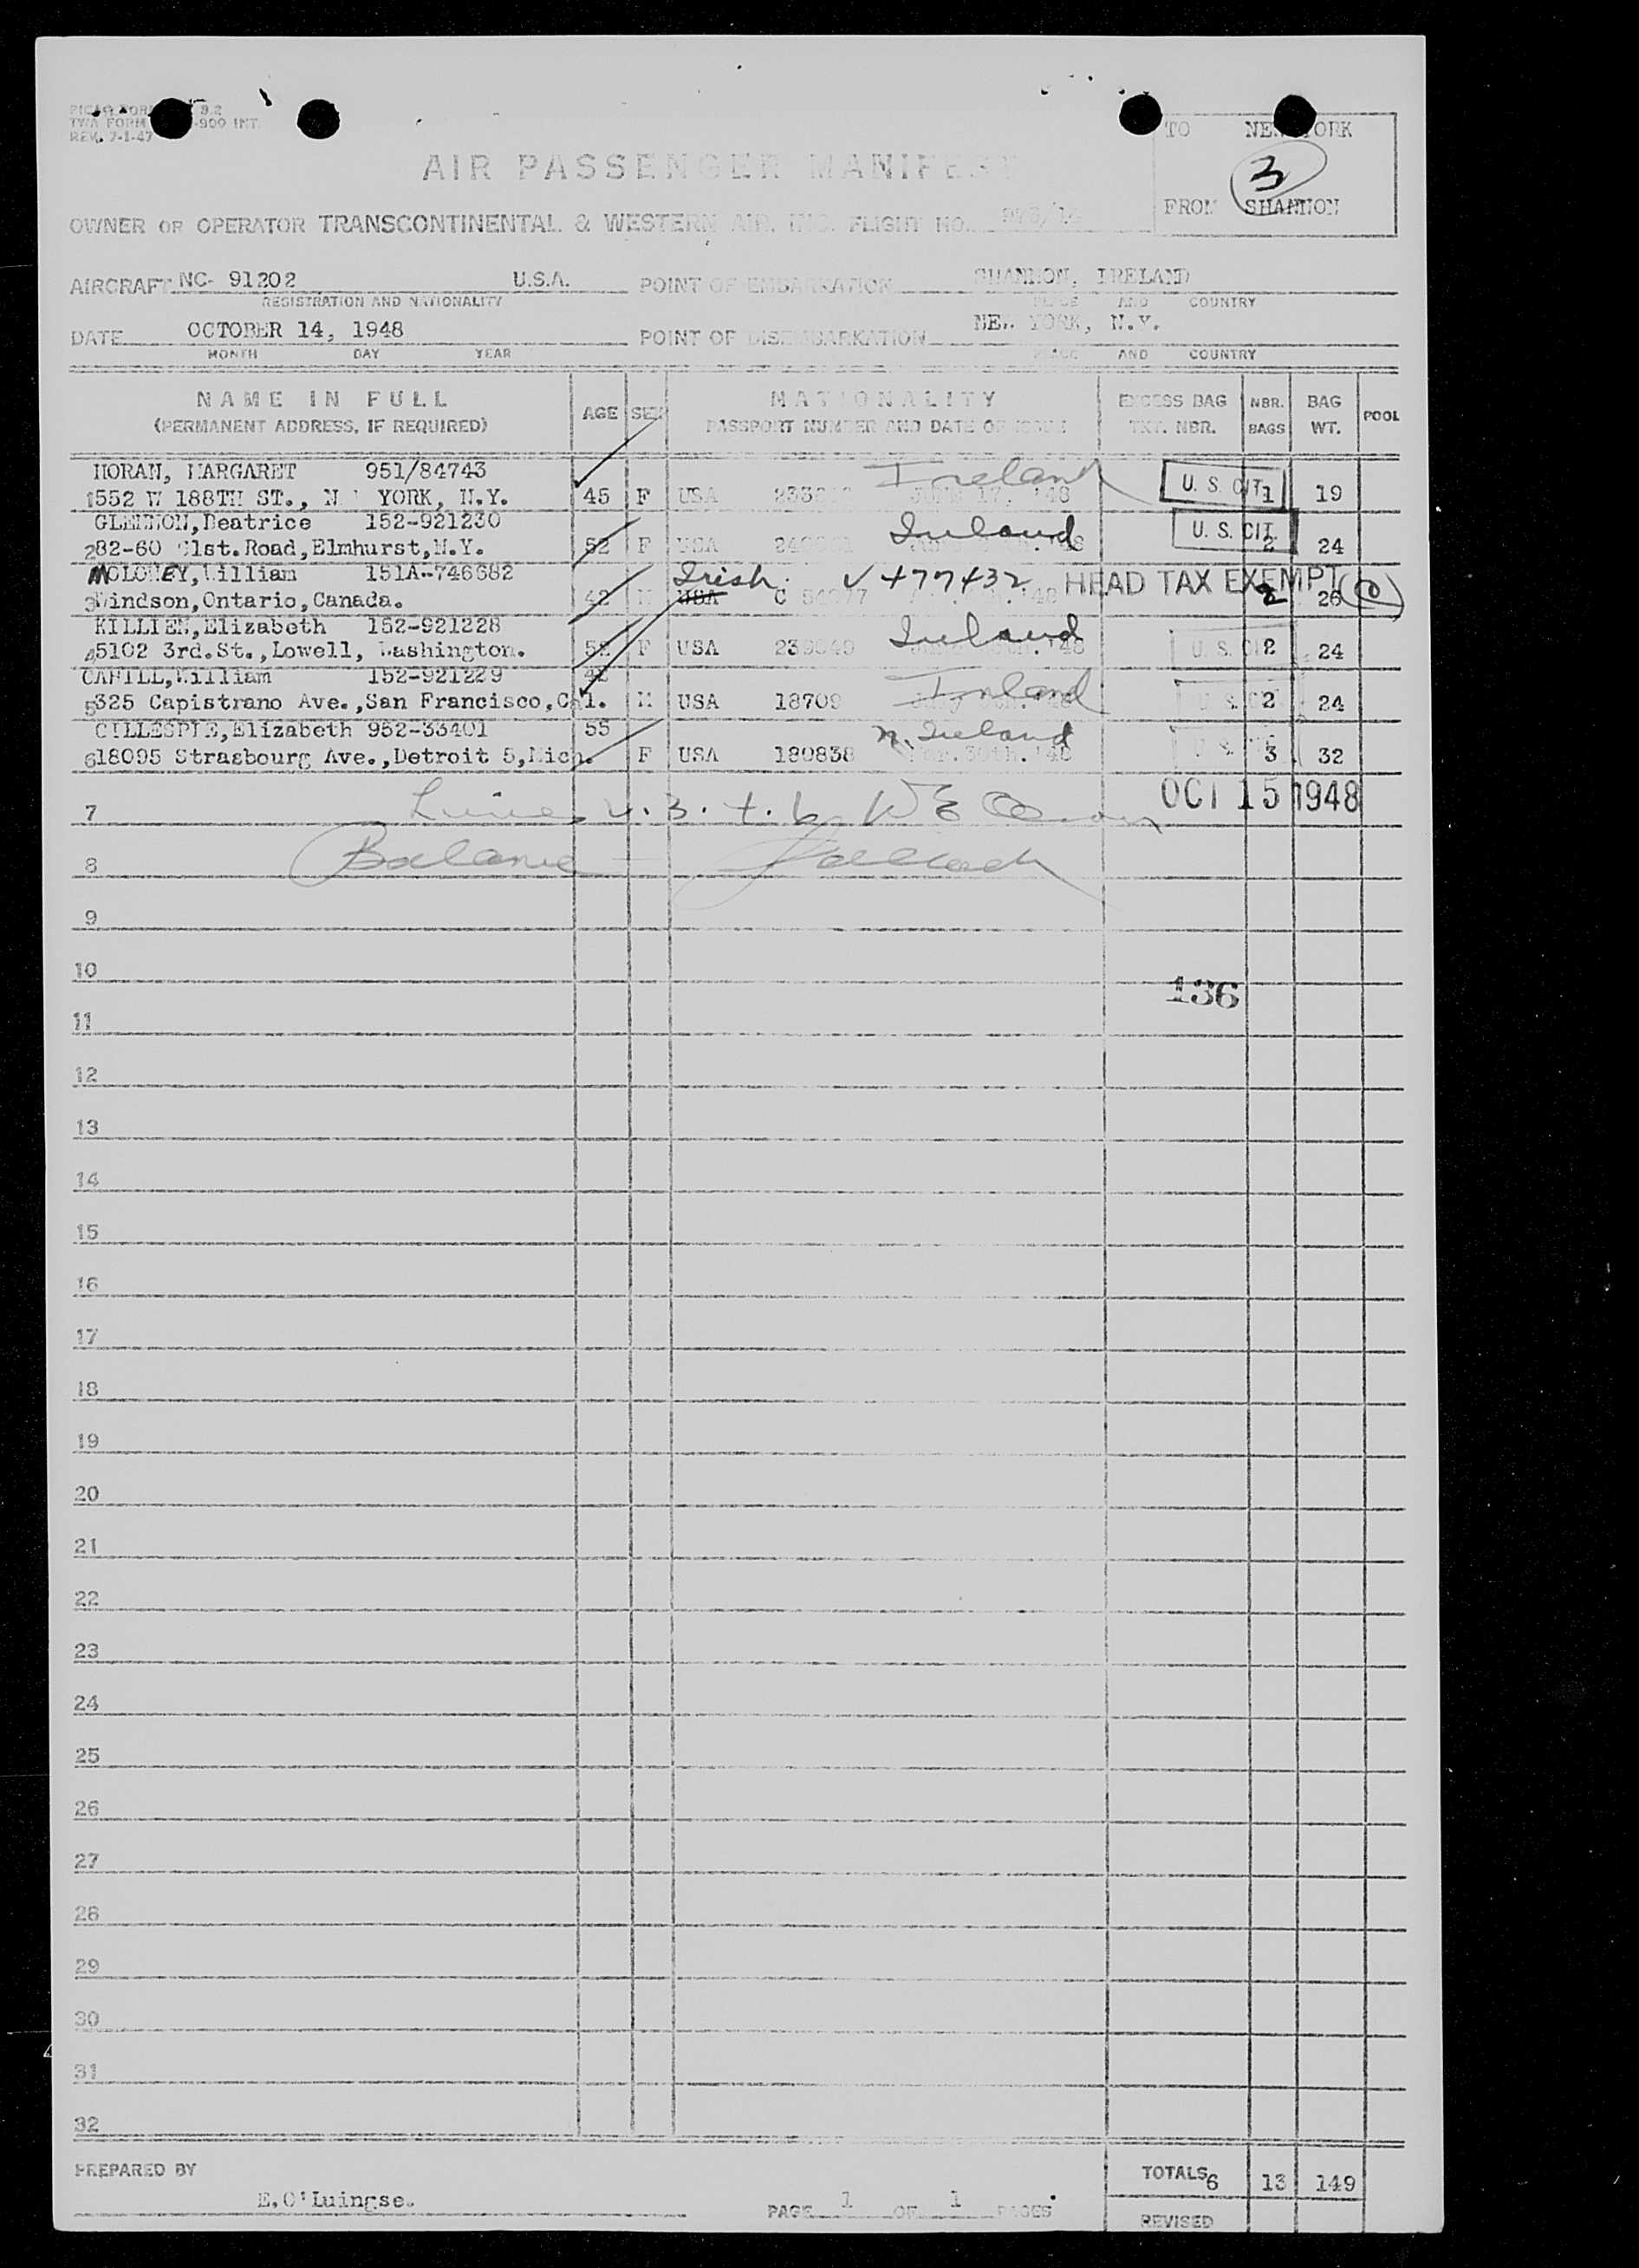 REV. 7-1-47
TO NEW YORK
3
FROM SHANNON
AIR PASSENGER MANIFEST
OWNER OR OPERATOR TRANSCONTINENTAL & WESTERN AIR, INC. FLIGHT NO.
AIRCRAFT NC- 91202 U.S.A. POINT OF EMBARKATION SHANNON, IRELAND
REGISTRATION AND NATIONALITY PLACE AND COUNTRY
DATE OCTOBER 14, 1948 POINT OF DISEMBARKATION NEW YORK, N.Y.
MONTH DAY YEAR PLACE AND COUNTRY
NAME IN FULL AGE SEX NATIONALITY EXCESS BAG NBR. BAG POOL
(PERMANENT ADDRESS, IF REQUIRED) PASSPORT NUMBER AND DATE OF ISSUE TKT. NBR. BAGS WT.
HORAN, MARGARET 951/84743 Ireland U. S. CIT
1 552 W 188TH ST., N YORK, N.Y. 45 F USA 17. '48 1 19
GLENNON, Beatrice 152-921230 Ireland U. S. CIT
2 82-60 61st. Road, Elmhurst, N.Y. 52 F USA '48 2 24
MOLONEY, William 151A-746682 Irish. V477432 HEAD TAX EXEMPT
3 Windson, Ontario, Canada. 42 M USA C '48 2 26
KILLIEN, Elizabeth 152-921228 Ireland
4 5102 3rd. St., Lowell, Washington. 52 F USA '48 U. S. CIT 2 24
CAHILL, William 152-921229 42 Ireland
5 325 Capistrano Ave., San Francisco, Cal. M USA 18709 '48 2 24
GILLESPIE, Elizabeth 952-33401 55 N. Ireland
6 18095 Strasbourg Ave., Detroit 5, Mich. F USA 180838 30th. '48 3 32
7 Lines OCT 15 1948
8 Balance
9
10
136
11
12
13
14
15
16
17
18
19
20
21
22
23
24
25
26
27
28
29
30
31
32
PREPARED BY TOTALS 6 13 149
E. O'Luingse.
PAGE 1 OF 1 PAGES
REVISED